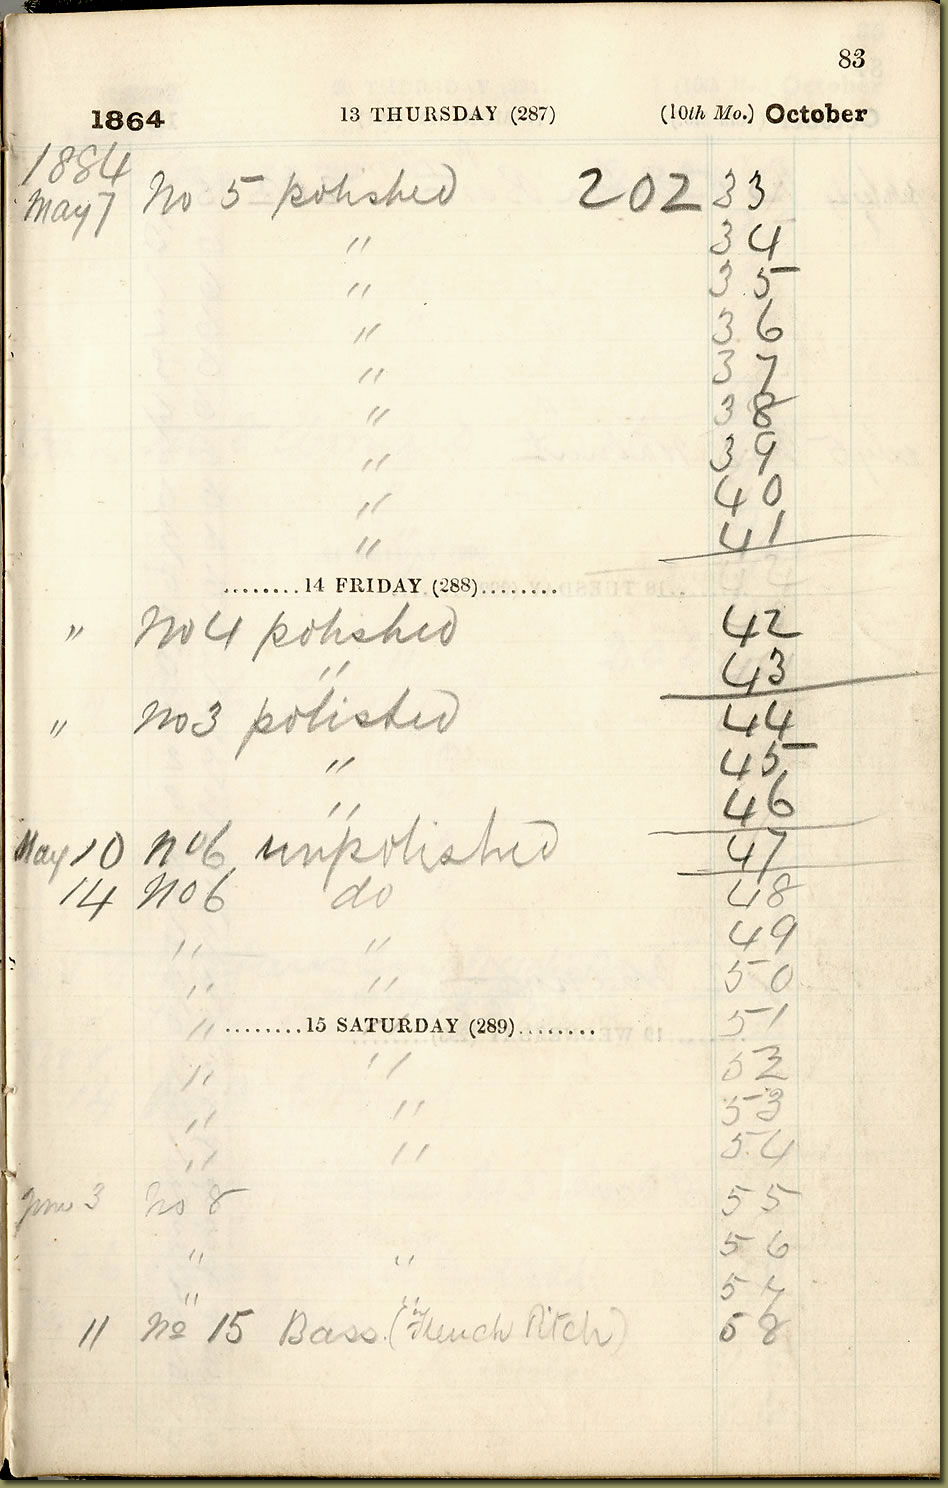 83
1864 13 THURSDAY (287) (10th Mo.) October
1884
May 7 No 5 polished 202 33
" 34
" 35
" 36
" 37
" 38
" 39
" 40
" 41
........14 FRIDAY (288)........
" No 4 polished 42
" 43
" No 3 polished 44
" 45
" 46
May 10 No 6 unpolished 47
14 No 6 do 48
" " 49
" " 50
" ........15 SATURDAY (289)........ 51
" " 52
" " 53
" " 54
June 3 No 8 55
" " 56
" " 57
11 No 15 Bass (in French Pitch) 58